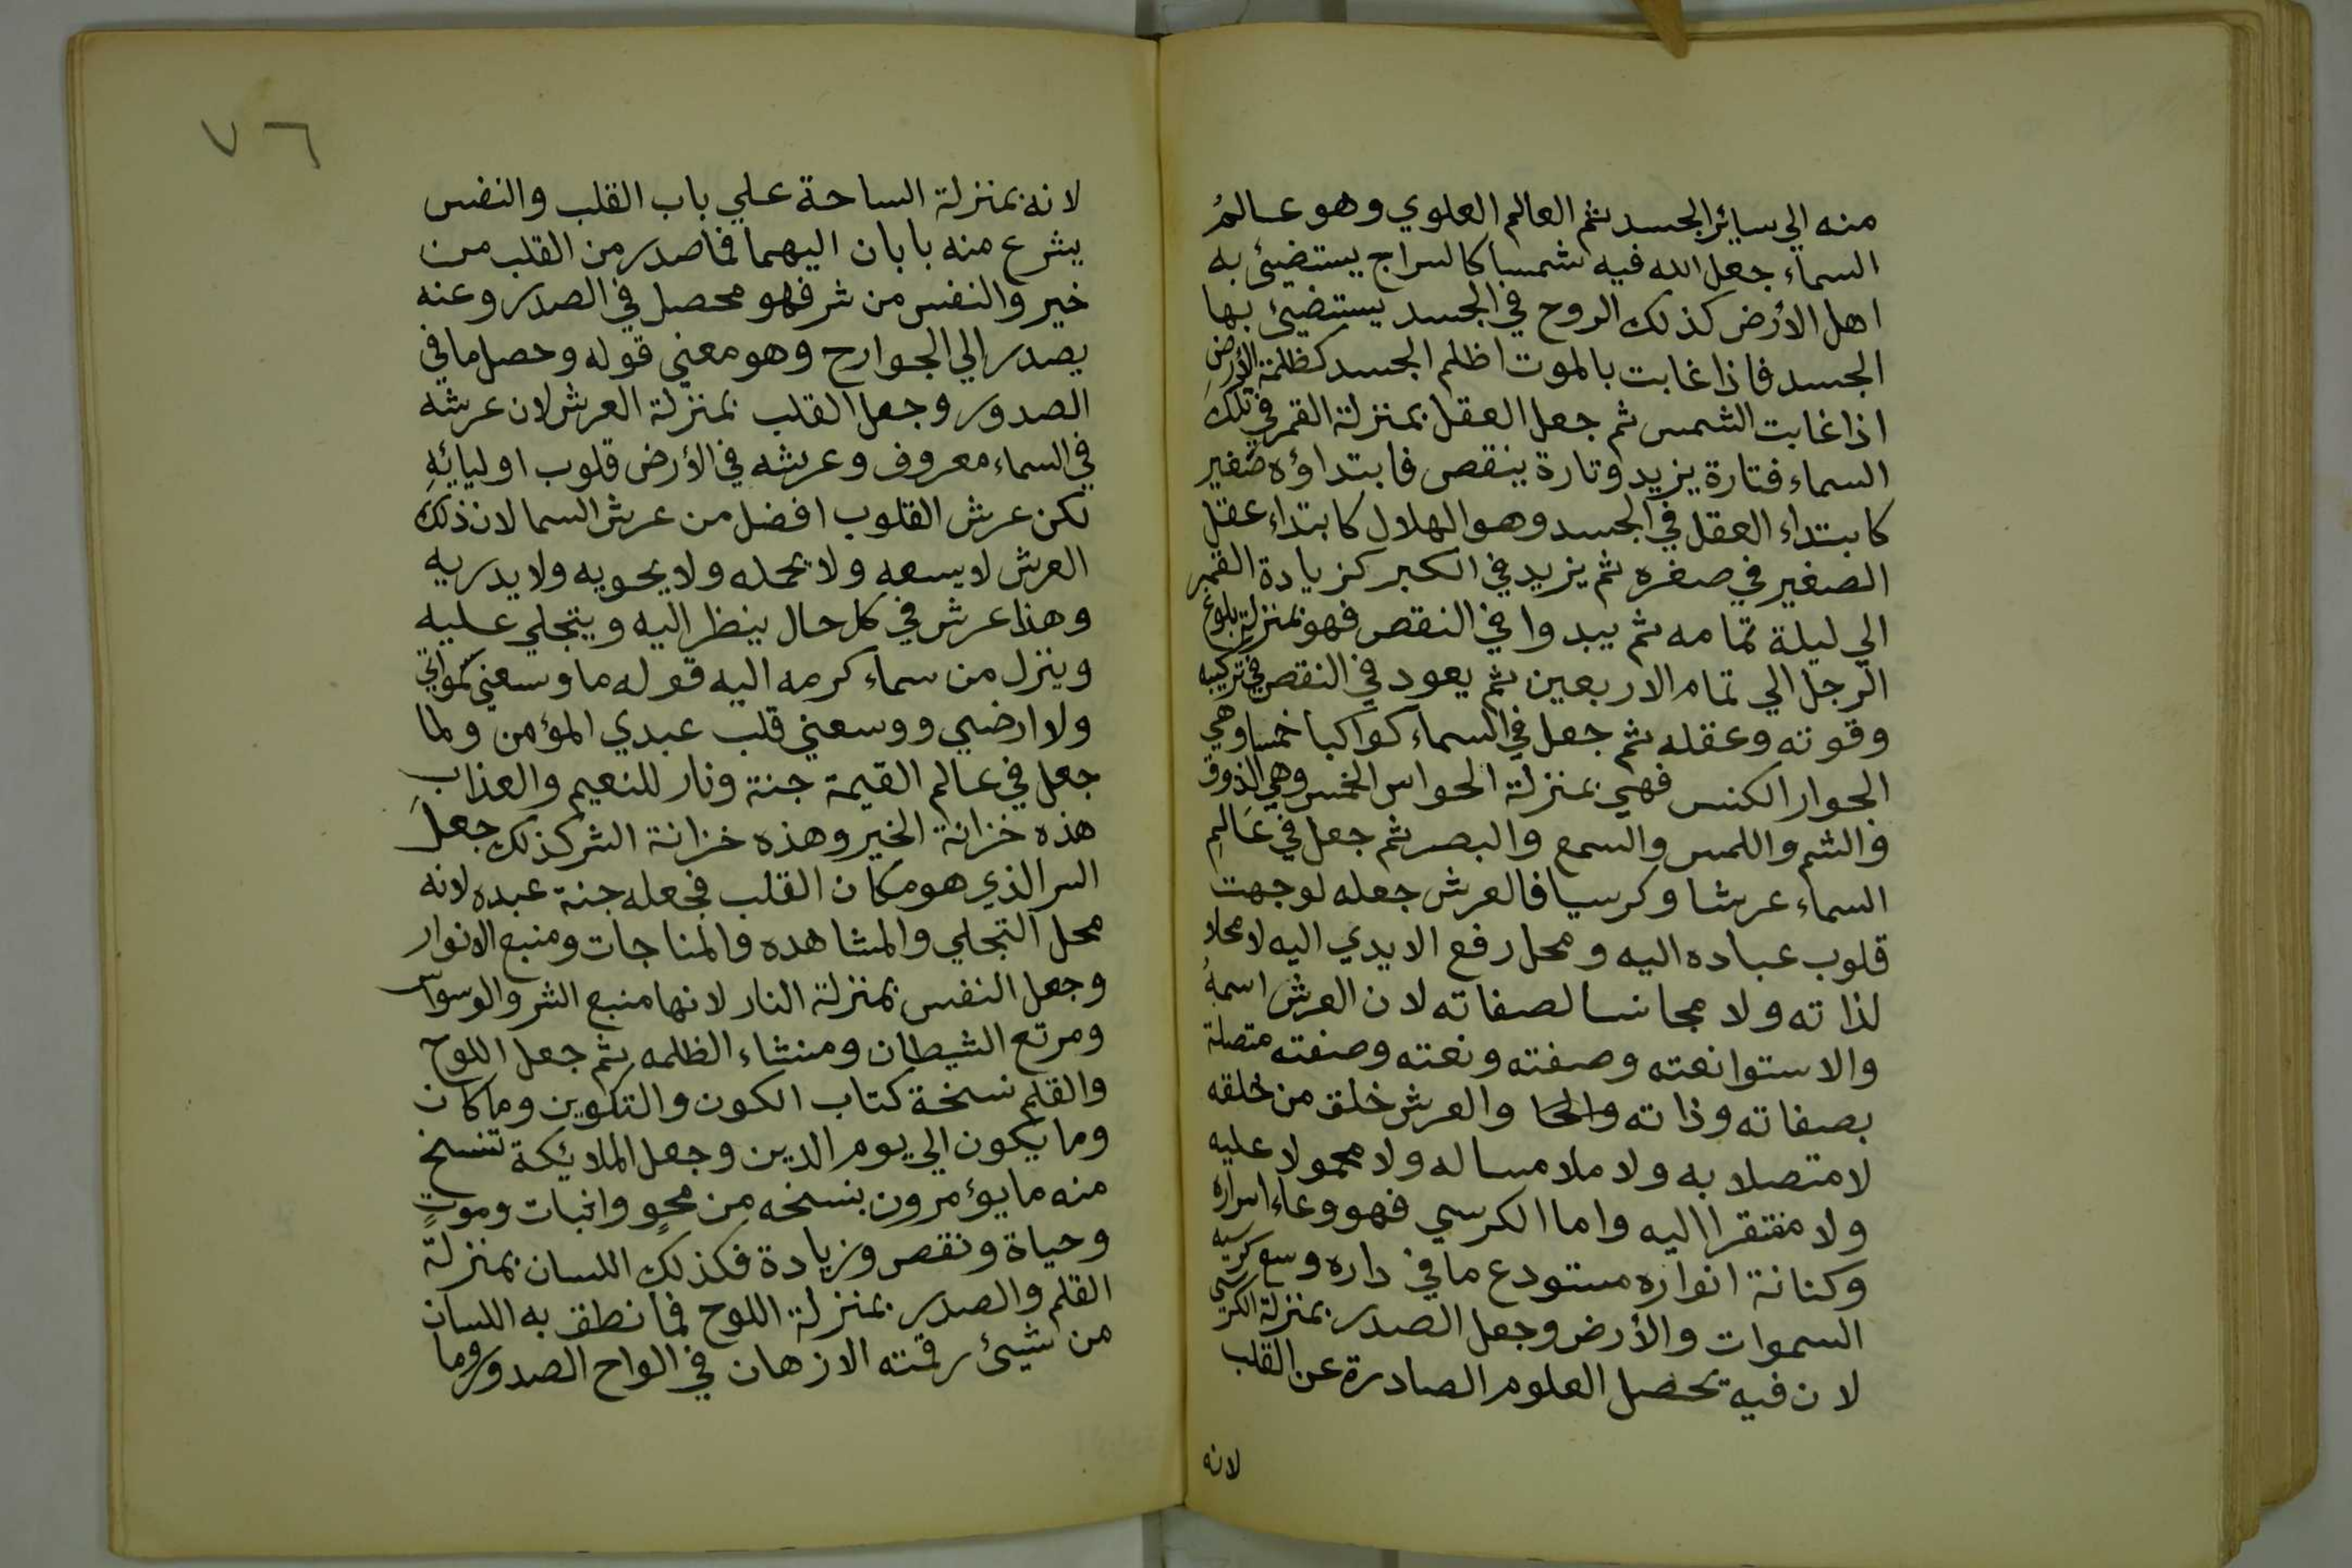 منه الي سائر الجسد ثم العالم العلوي وهو عالم
السماء جعل الله فيه شمسا كالسراج يستضيئ به
اهل الأرض كذلك الروح في الجسد يستضيئ بها
الجسد فاذا غابت بالموت اظلم الجسد كظلمة الأرض
اذا غابت الشمس ثم جعل العقل بمنزلة القمر في تلك
السماء فتارة يزيد وتارة ينقص فابتداؤه صغير
كابتداء العقل في الجسد وهو الهلال كابتداء عقل
الصغير في صغره ثم يزيد في الكبر كزيادة القمر
الي ليلة تمامه ثم يبدوا في النقص فهو بمنزلة بلوغ
الرجل الي تمام الاربعين ثم يعود في النقص في تركيبه
وقوته وعقله ثم جعل في السماء كواكبا خمسا وهي
الجوار الكنس فهي بمنزلة الحواس الخمس وهي الذوق
والشم واللمس والسمع والبصر ثم جعل في عَالمِ
السماء عرشا وكرسيا فالعرش جعله لوجهت
قلوب عباده اليه ومحل رفع الايدي اليه لا محلا
لذاته ولا مجانسا لصفاته لان العرش اسمهُ
والاستوا نعته وصفته ونعته وصفته متصلة
بصفاته وذاته والحا والعرش خلق من خلقه
لا متصلا به ولا ملامسا له ولا محمولا عليه
ولا مفتقرا اليه واما الكرسي فهو وعاء اسراره
وكنانة انواره مستودع ما في داره وسع كرسيه
السموات والأرض وجعل الصدر بمنزلة الكرسي
لان فيه تحصل العلوم الصادرة عن القلب
لانه
٧٦
لانه بمنزلة الساحة علي باب القلب والنفس
يشرع منه بابان اليهما فما صدر من القلب من
خير والنفس من شر فهو محصل في الصدر وعنه
يصدر الي الجوارح وهو معني قوله وحصل ما في
الصدور وجعل القلب بمنزلة العرش لان عرشه
في السماء معروف وعرشه في الأرض قلوب اوليائهِ
لكن عرش القلوب افضل من عرش السما لان ذلك
العرش لا يسعه ولا يحمله ولا يحويه ولا يدريه
وهذا عرش في كل حال ينظر اليه ويتجلي عليه
وينزل من سماء كرمه اليه قوله ما وسعني سمواتي
ولا ارضي ووسعني قلب عبدي المؤمن ولما
جعل في عالم القيمة جنة ونار للنعيم والعذاب
هذه خزانة الخير وهذه خزانة الشر كذلك جعلَ
السر الذي هو مكان القلب فجعله جنة عبده لانه
محل التجلي والمشاهده والمناجات ومنبع الانوار
وجعل النفس بمنزلة النار لانها منبع الشر والوسواس
ومرتع الشيطان ومنشاء الظلمه ثم جعل اللوح
والقلم نسخة كتاب الكون والتكوين وما كان
وما يكون الي يوم الدين وجعل الملائكة تنسخ
منه ما يؤمرون بنسخه من محوٍ واثبات وموتٍ
وحياة ونقص وزيادة فكذلك اللسان بمنزلة
القلم والصدر بمنزلة اللوح فما نطق به اللسان
من شيئ رقمته الازهان في الواح الصدور وما